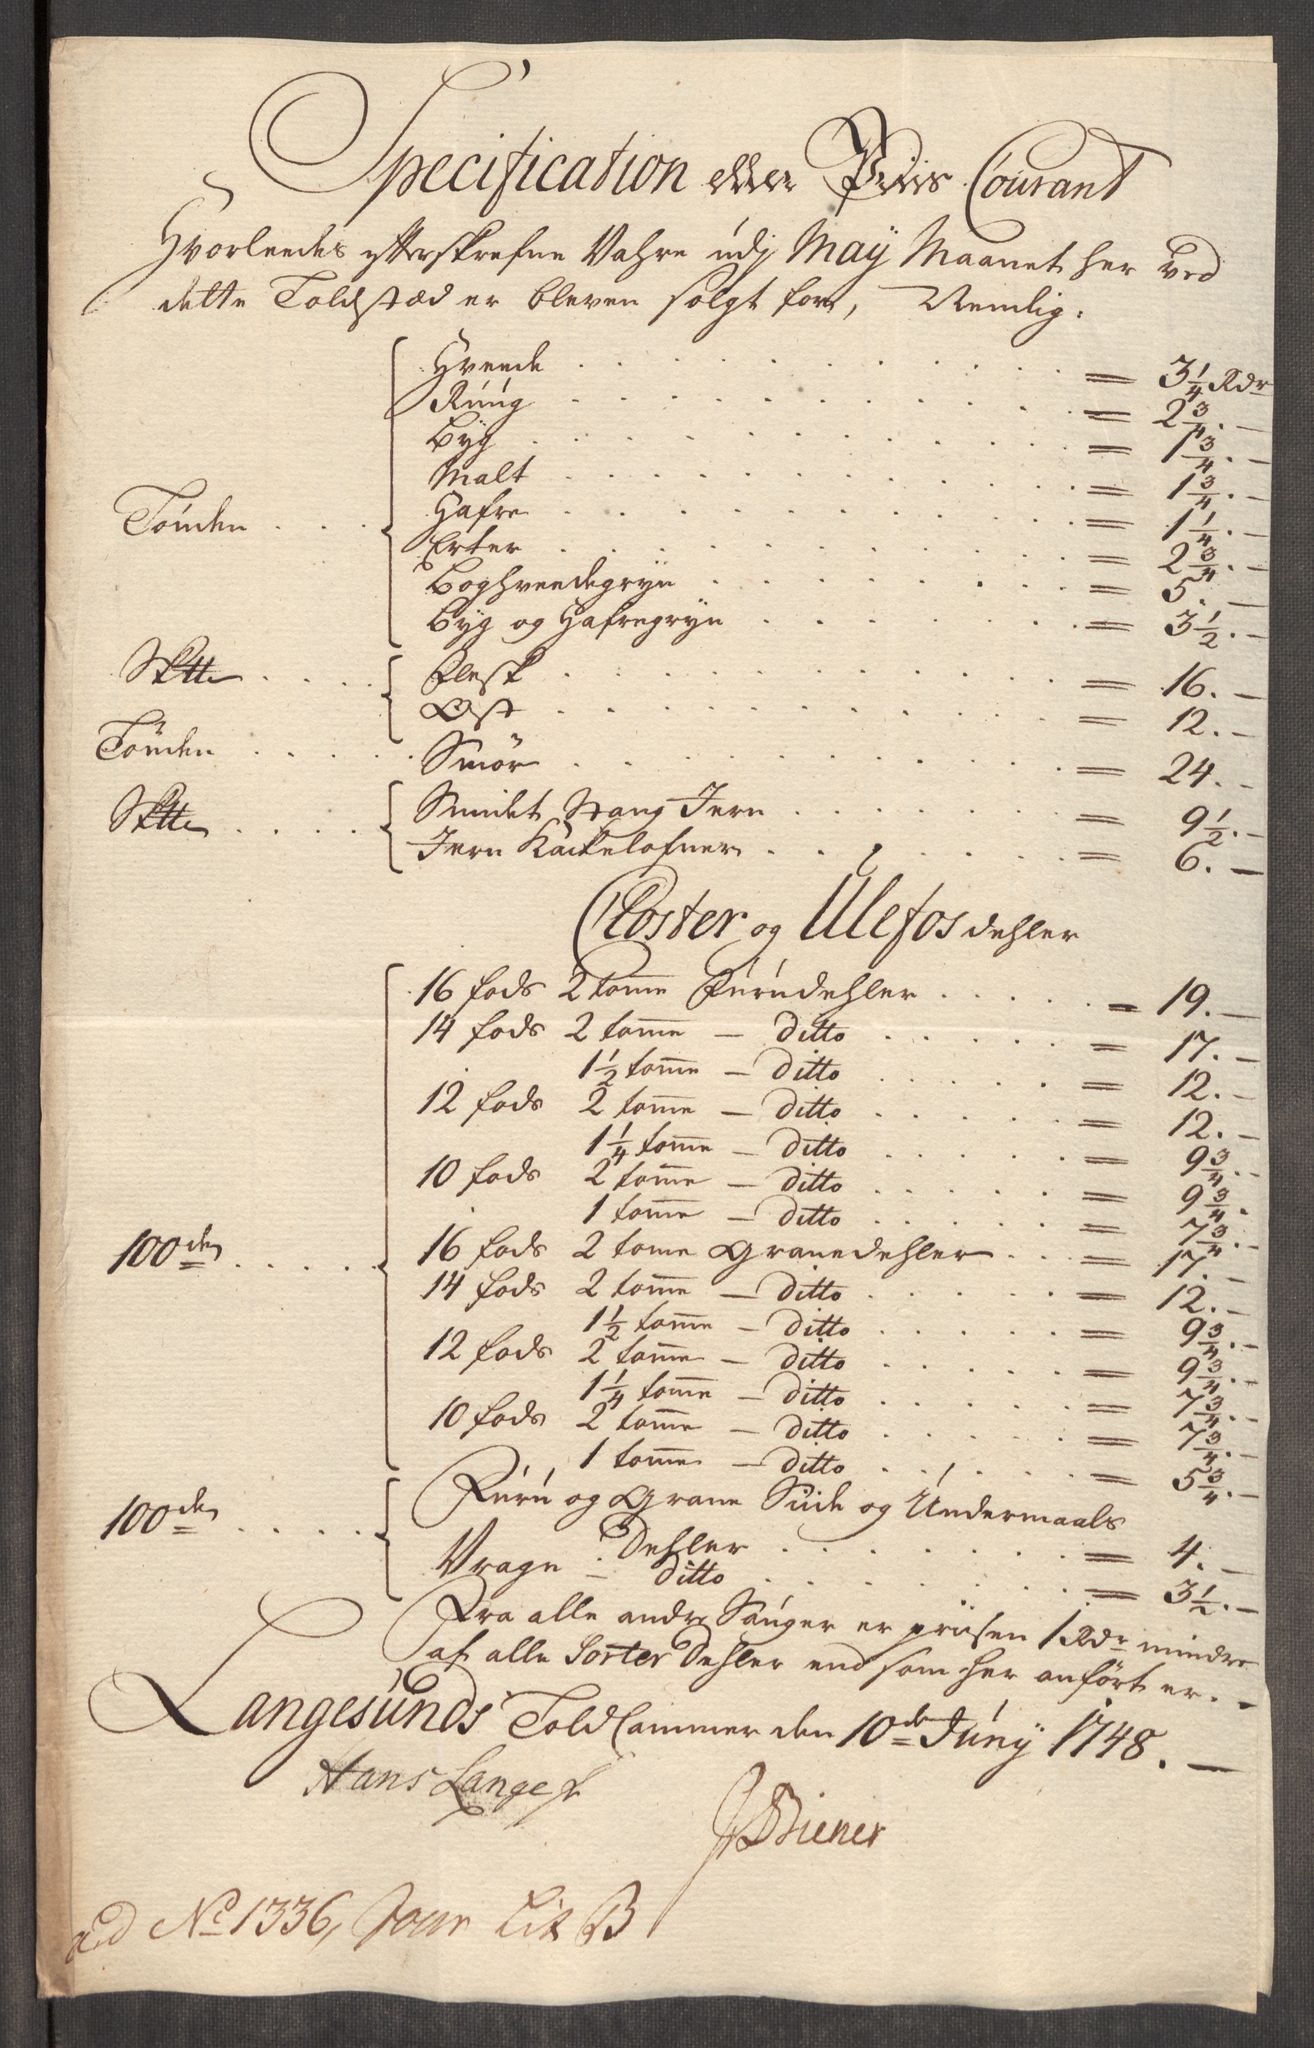 Specification eller Priis Courant
Hvorleedes efterskrefne Vahre udj Maÿ Maanet her ved
dette Toldstæd er bleven solgt for, Nemlig.
Hveede = 3 1/4 Rdr
Rúúg = 2 3/4. —
Býg = 1 3/4. —
Malt = 1 3/4. —
Tönden Hafre = 1 1/4. —
Erter = 2 3/4. —
Boghveedegrÿn = 5. —
Bÿg og Hafregrÿn = 3 1/2. —
Flesk = 16. —
Ost = 12. —
Tönden Smör = 24. —
Smidet Stang Jern = 9 1/2. —
Jern Kackelofner = 6. —
Closter og Ulefos dehler
16 fods 2 tome Fúrúdehler = 19. —
14 fods 2 tome — ditto = 17. —
1 1/2 tome — ditto = 12. —
12 fods 2 tome — ditto = 12. —
1 1/4 tome — ditto = 9 3/4. —
10 fods 2 tome — ditto = 9 3/4.
1 tome — ditto = 7 3/4. —
100de 16 fods 2 tome Granedehler = 17. —
14 fods 2 tome — ditto = 12. —
1 1/2 tome — ditto = 9 3/4. —
12 fods 2 tome — ditto = 9 3/4. —
1 1/4 tome — ditto = 7 3/4. —
10 fods 2 tome — ditto = 7 3/4. —
1 tome — ditto = 5 3/4. —
100de Fúrú og Grane Súide og Úndermaals
Dehler = 4. —
Vrage — ditto = 3 1/2. —
Fra alle andre Sauger er priisen 1 Rdr mindre
af alle Sorter Dehler end som her anfört er. —
Langesúnds Told Cammer den 10de Júnÿ 1748. —
Hans Lange
Biener
ad No 1336, Jour Lit B